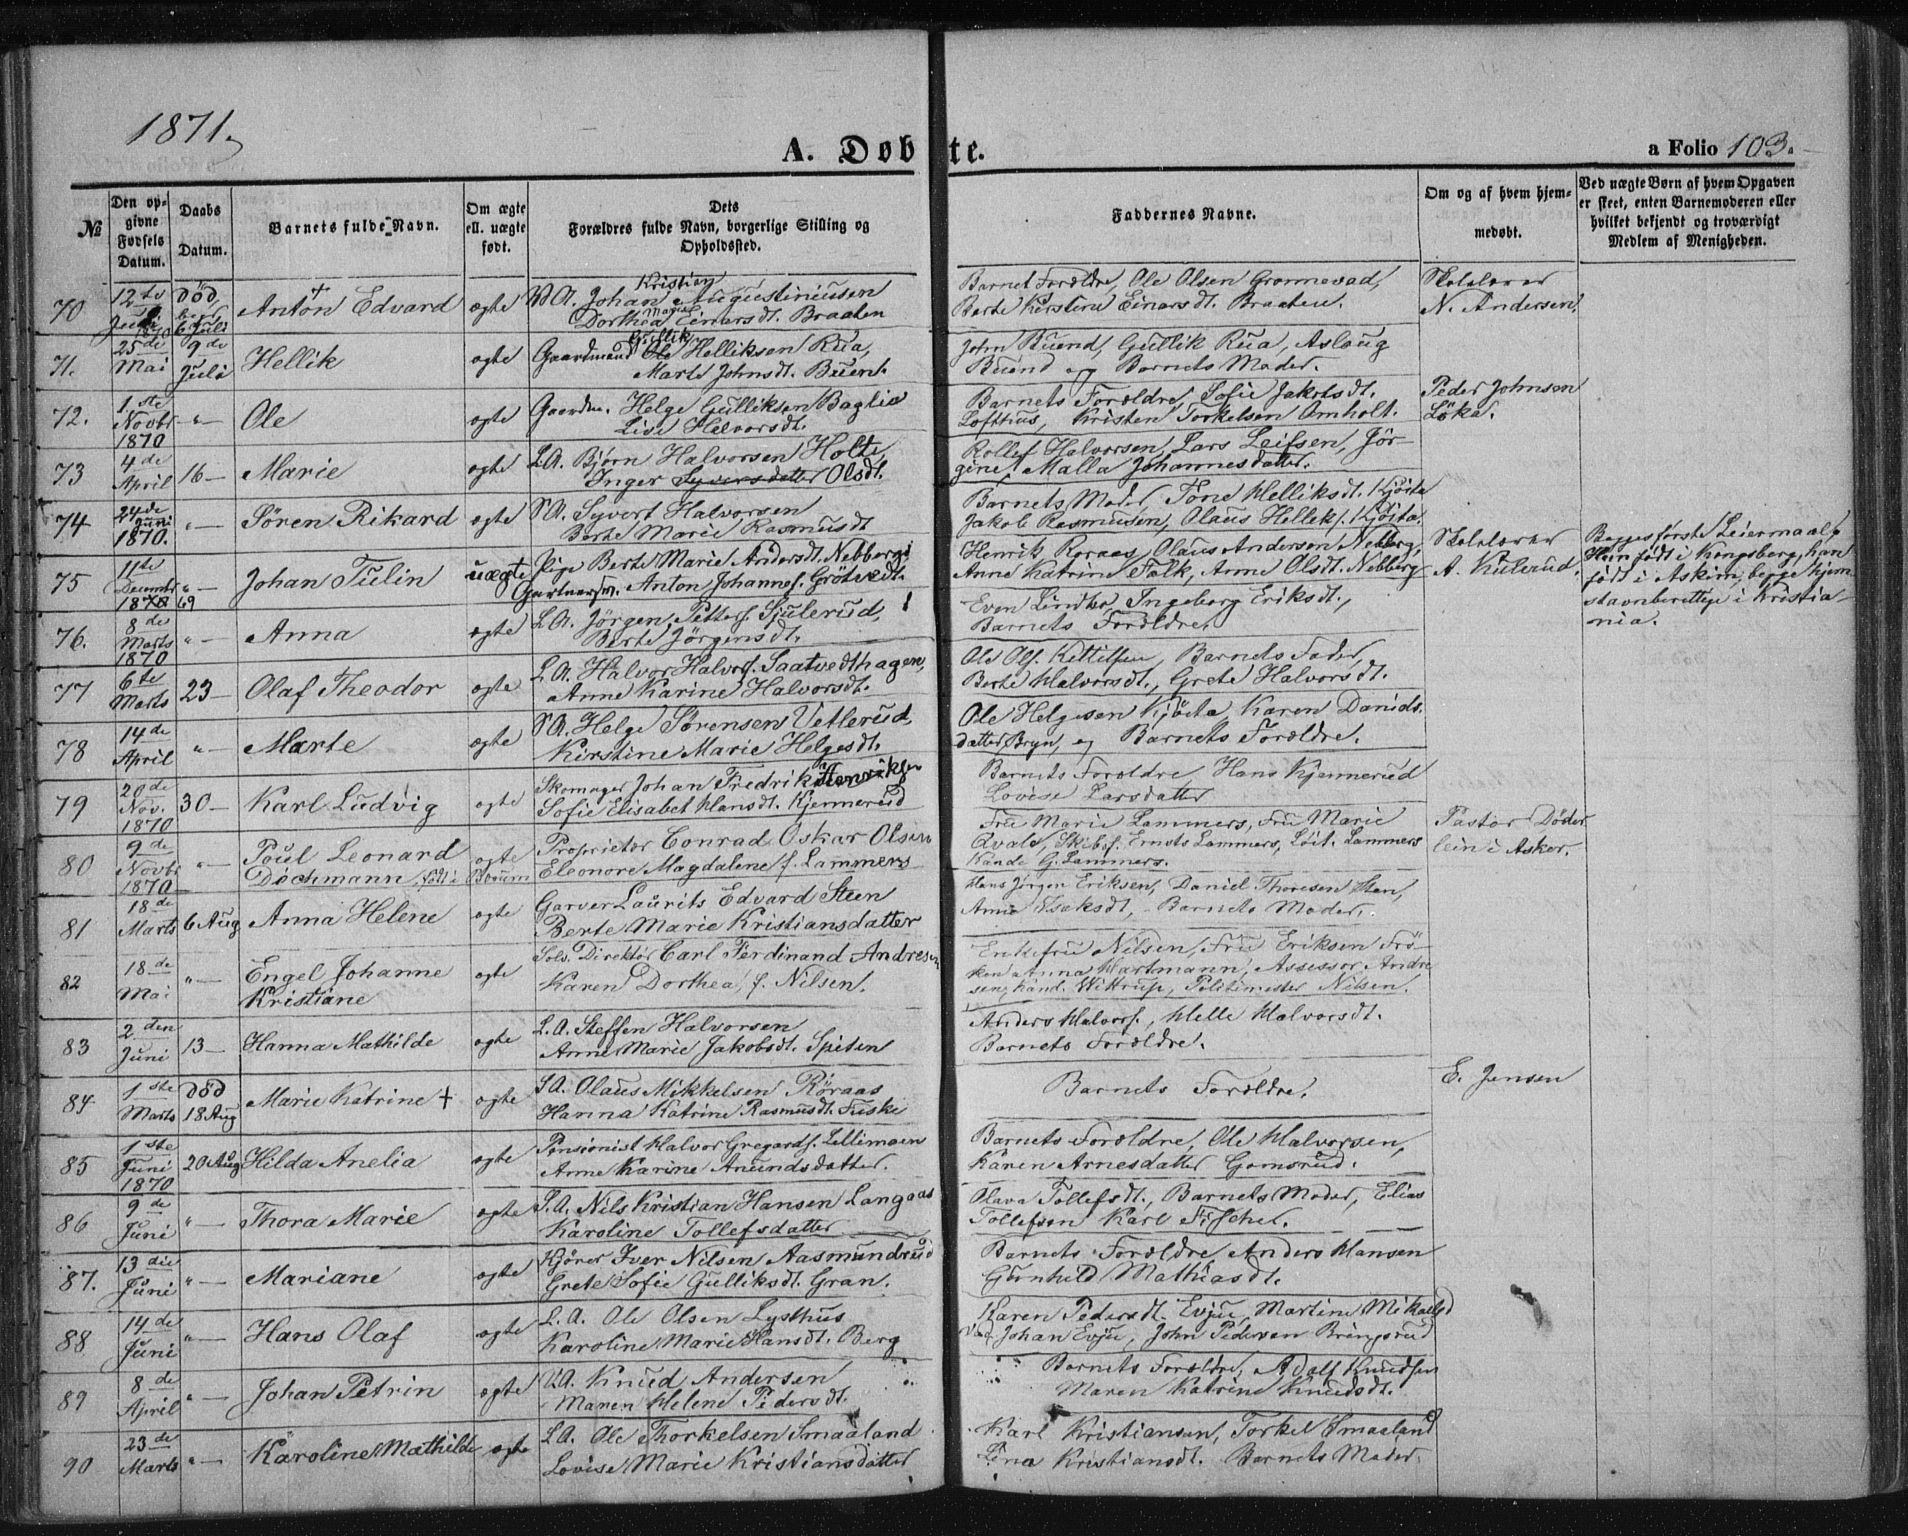 1871.
A. Døbte.
a Folio 103.
№
Den op-
givne
Fødsels
Datum.
Daabs
Datum.
Barnets fulde Navn.
Om ægte
ell. uægte
født.
Dets
Forældres fulde Navn, borgerlige Stilling og
Opholdssted.
Faddernes Navne.
Om og af hvem hjem-
medøbt.
Ved uægte Børn af hvem Opgaven
er skeet, enten Barnemoderen eller
hvilket bekjendt og troværdigt
Medlem af Menigheden.
70 12te Juni 1870 Död 6 Juli Anton Edvard + ægte Johan Kristian Augustiniusen
Dorthea Marie Einarsdt. Braaten
Barnets Forældre, Ole Olsen Grønnevad,
Berte Kirstine Einarsdt. Braaten.
Skolelærer
N. Andersen.
71. 25de Mai 9de Juli Hellik ægte Gaardmand Gullik Helliksen Rua,
Marte Johnsdt. Buend
John Buend, Gullik Rua, Aslaug
Buend og Barnets Moder.
72. 1ste Novbr 1870 "— Ole ægte Gaardm. Helge Gulliksen Baglia
Lise Halvorsdt.
Barnets Forældre, Sofie Jakobsdt.
Lofthus, Kristen Torkelsen Omholt.
Peder Johnsen
Löka.
73 4de April 16— Marie ægte L.A. Bjørn Halvorsen Holte,
Inger Syversdatter Olsdt.
Rollef Halvorsen, Lars Leifsen, Jör-
gine Malla Johannesdatter.
74 24de Juni 1870. "— Sören Rikard ægte S.A. Syvert Halvorsen
Berte Marie Rasmusdt
Barnets Moder, Tone Helliksdt. Kjöita
Jakob Rasmusen, Olaus Helliks. Kjöita.
75 11te December 1869 "— Johan Tulin uægte Pige Berte Marie Andersdt. Nebberg
Gartnersv. Anton Johannes. Grötvedt.
Henrik Roraas, Olaus Andersen Nebberg,
Anne Katrine Falk, Anne Olsdt. Nebberg
Skolelærer
A. Kulerud.
Begges første Leiermaal.
Hun født i Kongsberg, han
født i Askim, begge hjem-
stavnberettige i Kristia-
nia.
76. 8de Marts 1870 "— Anna ægte L.A. Jörgen Petters. Sjulerud,
Berte Jörgensdt.
Even Lindbo, Ingeborg Eriksdt.,
Barnets Forældre.
77 6te Marts 23— Olaf Theodor ægte L.A. Halvor Halvors. Saatvedthagen,
Anne Karine Halvorsdt.
Ole Ols. Kittilsen, Barnets Fader,
Berte Halvorsdt., Grete Halvorsdt.
78 14de April "— Marte ægte S.A. Helge Sørensen Vetlerud,
Kirstine Marie Helgesdt.
Ole Helgesen Kjöita, Karen Daniels-
datter Bryn, og Barnets Forældre.
79 20de Nov. 1870 30— Karl Ludvig ægte Skomager Johan Fredrik Henriksen
Sofie Elisabet Hansdt. Kjennerud
Barnets Forældre, Hans Kjennerud
Lovise Larsdatter
80 9de Novbr 1870 "— Poul Leonard
Dechmann, født i Bærum ægte Proprietær Conrad Oskar Olsen
Eleonore Magdalene f. Lammers
Fru Marie Lammers, Fru Marie
Qvale, Skibsf. Ernst Lammers, Löit. Lammers
Kande G. Lammers.
Pastor Döder
lein i Asker.
81 18de Marts 6 Aug Anna Helene ægte Garver Laurits Edvard Steen
Berte Marie Kristiansdatter
Hans Jörgen Eriksen, Daniel Thoresen Sten,
Anne Isaksdt, Barnets Moder.
82 18de Mai "— Engel Johanne
Kristiane ægte Sölv. Direktör Carl Ferdinand Andresen
Karen Dorthea, f. Nilsen.
Enkefru Nilsen, Fru Eriksen Frö-
ken Anna Hartmann, Assessor Andre
sen, Kand. Wittrup, Politimester Nilsen.
83 2den Juni 13— Hanna Mathilde ægte L.A. Steffen Halvorsen
Anne Marie Jakobsdt. Spiten
Anders Halvors., Helle Halvorsdt.
Barnets Forældre.
84 1ste Marts Död 18 Aug Marie Katrine + ægte S.A. Olaus Mikkelsen Röraas
Hanna Katrine Rasmusdt. Fiske
Barnets Forældre.
E. Jensen
85 1ste Juni 1870 20 Aug Hilda Anelia ægte Pensionist Halvor Gregards. Lillimoen
Anne Karine Anundsdatter.
Barnets Forældre, Ole Halvorsen,
Karen Arnesdatter Gomsrud.
86 9de Juni "— Thora Marie ægte S.A. Nils Kristian Hansen Langaas
Karoline Tollefsdatter
Olava Tollefsdt., Barnets Moder, Elias
Tollefsen Karl Fischer.
87. 13die Juni "— Mariane ægte Kjörer Iver Nilsen Aasmundrud
Grete Sofie Gulliksdt. Gran.
Barnets Forældre Anders Hansen
Gunhild Mathiasdt.
88 14de Juni "— Hans Olaf ægte L.A. Ole Olsen Lysthus
Karoline Marie Hansdt. Berg
Karen Pedersdt. Evju, Martine Mikaelsd
Johan Evju, John Pedersen Bringsrud
89 8de April "— Johan Petrin ægte U.A. Knud Andersen
Maren Helene Pedersdt.
Barnets Forældre, Adolf Knudsen
Maren Katrine Knudsdt.
90 23de Marts "— Karoline Mathilde ægte L.A. Ole Thorkelsen Smaaland
Lovise Marie Kristiansdatter
Karl Kristiansen, Torkel Smaaland
Lina Kristiansdt. Barnets Moder.